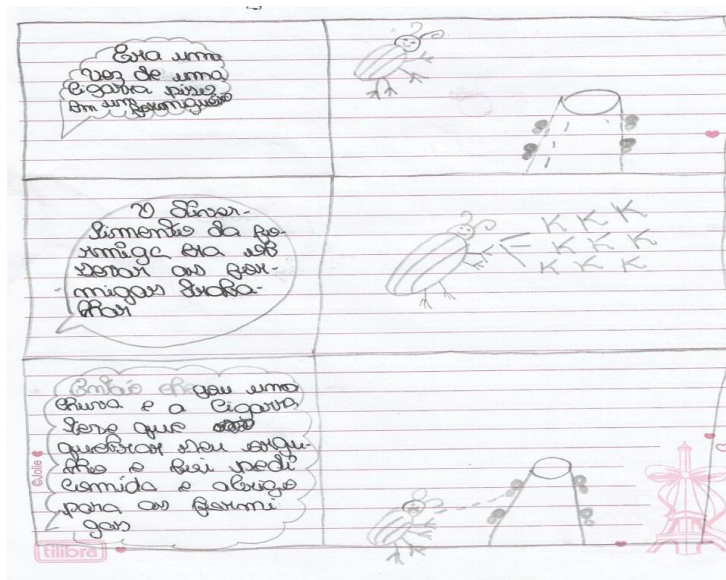 Era uma
vez de uma
cigarra pisou
em um formigueiro
O diver-
timento da for-
miga era ob
servar as for-
migas traba-
lhar
K K K
K K K
K K K
Então chegou uma
chuva e a cigarra
teve que
quebrar seu orgu-
lho e foi pedi
comida e abrigo
para as formi
gas
©Jolie
tilibra